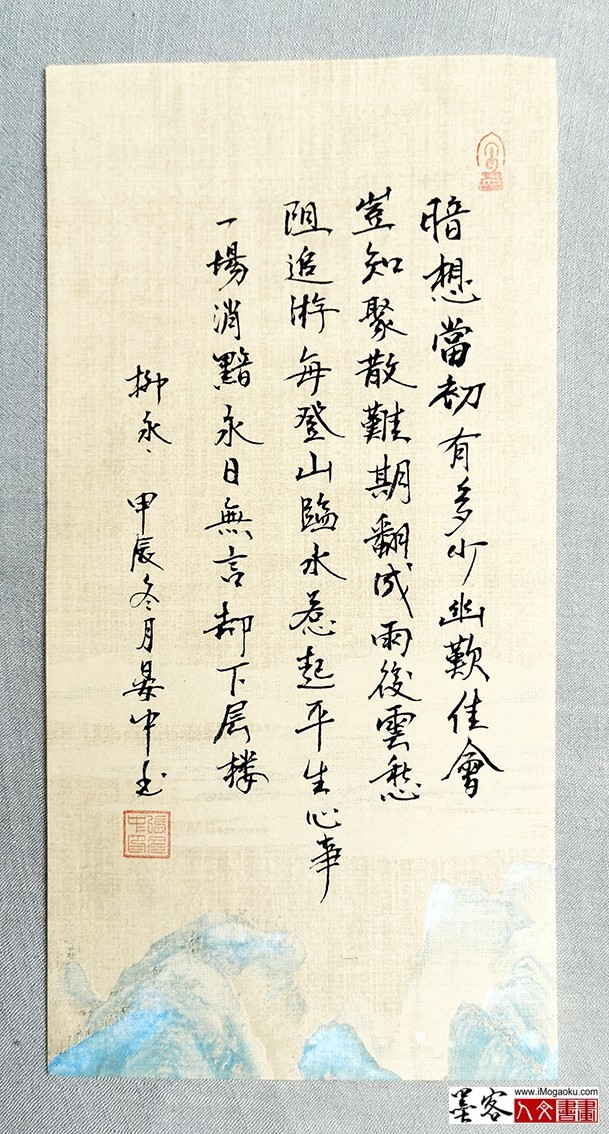 暗想當初有多少幽歎佳會
豈知聚散難期翻成雨後雲愁
阻追游每登山臨水惹起平生心事
一場消黯永日無言却下层樓
柳永、甲辰冬月晏中书
www.iMogaoku.com
墨客人文書畫